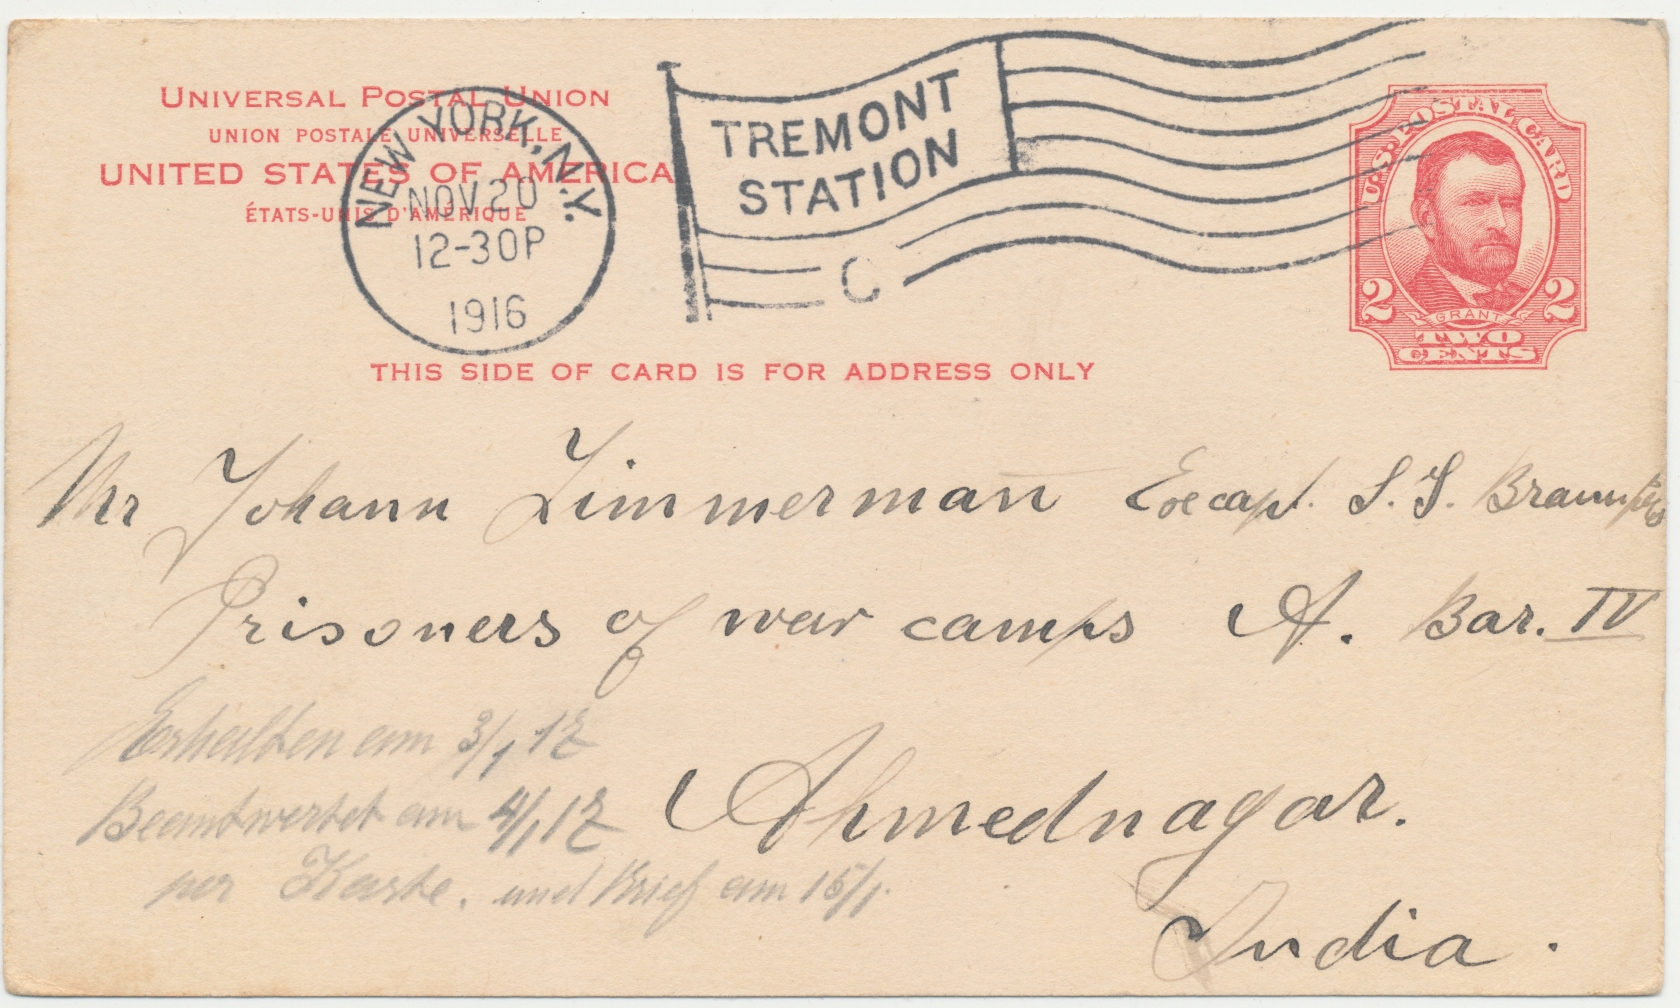 UNIVERSAL POSTAL UNION
UNION POSTALE UNIVERSELLE
UNITED STATES OF AMERICA
ÉTATS-UNIS D'AMÉRIQUE
THIS SIDE OF CARD IS FOR ADDRESS ONLY
NEW YORK, N.Y.
NOV 20
12-30P
1916
TREMONT
STATION
C
U.S. POSTAL CARD
GRANT
2 2
TWO
CENTS
Mr Johann Zimmermann S. S.
Prisoners of war camps A. Bar. IV
Ahmednagar.
India.
Erhalten am 3/1 17
Beantwortet am 4/1 17
per Karte. und Brief am 15/1.